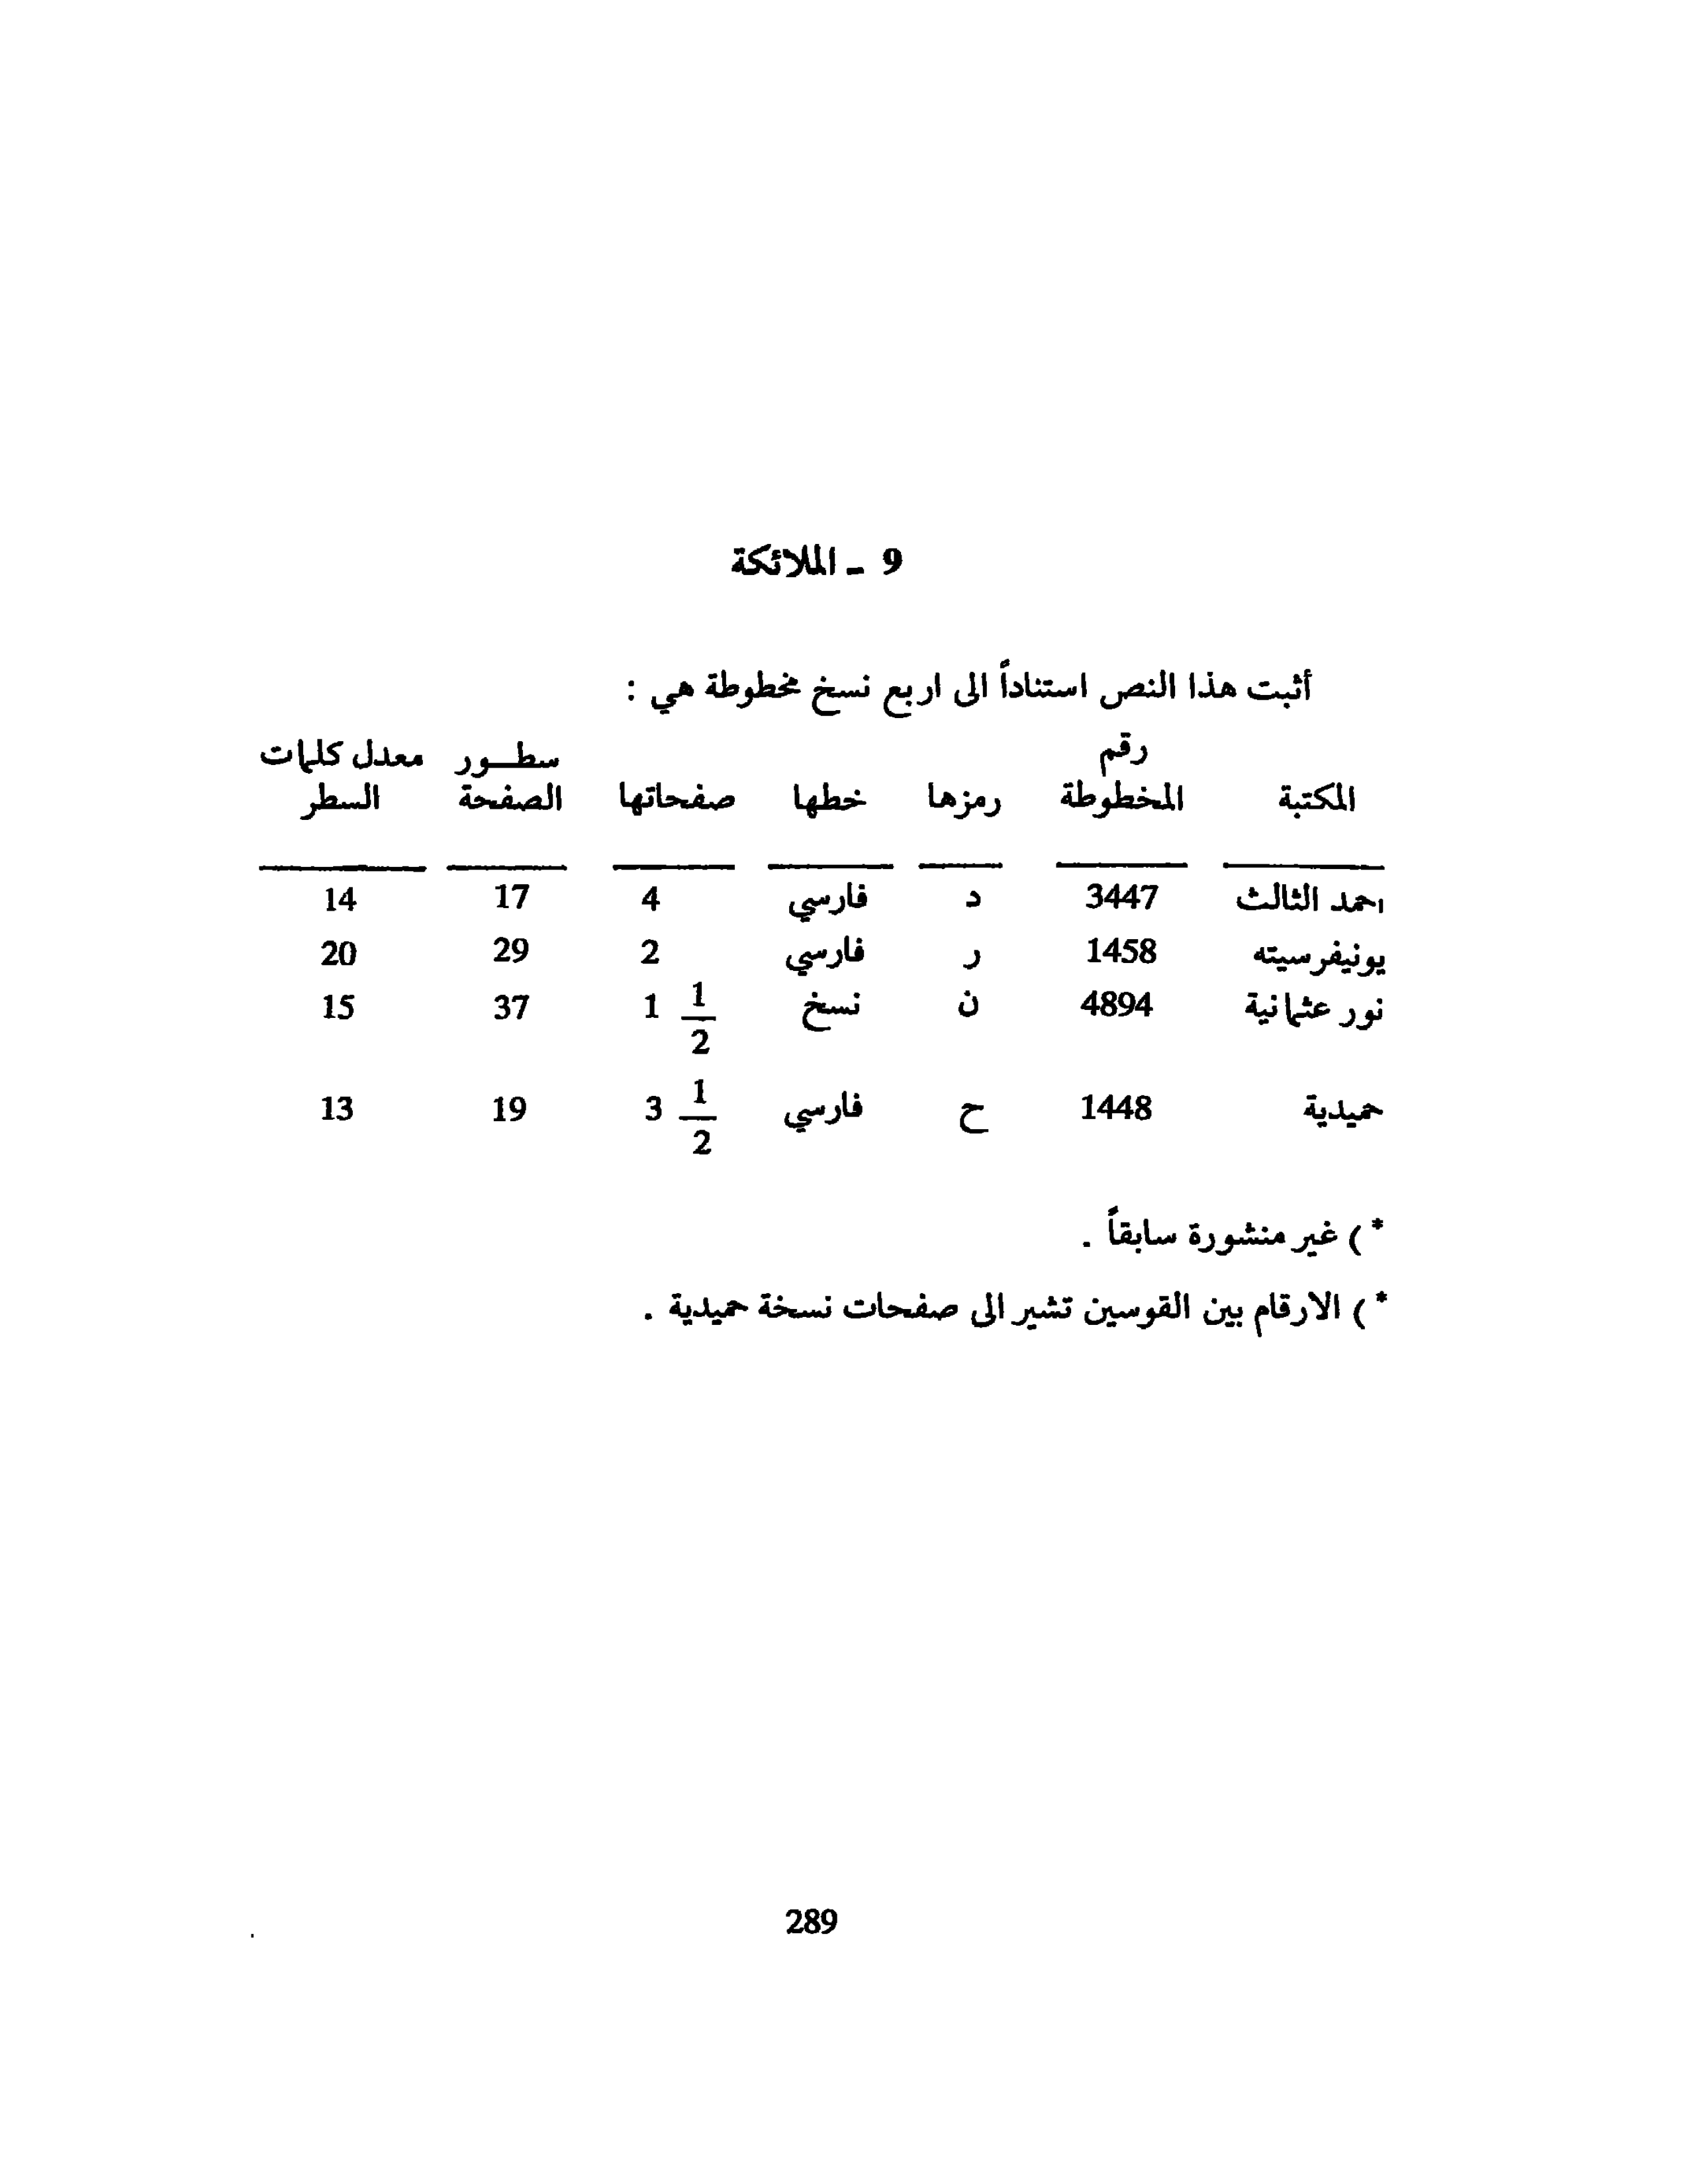 9 ـ الملائكة
أثبت هذا النص استناداً الى اربع نسخ مخطوطة هي :
رقم سطـــور معدل كلمات
المكتبة المخطوطة رمزها خطها صفحاتها الصفحة السطر
احمد الثالث 3447 د فارسي 4 17 14
يونيفرسيته 1458 ر فارسي 2 29 20
نور عثمانية 4894 ن نسخ 1 1/2 37 15
حميدية 1448 ح فارسي 3 1/2 19 13
* ) غير منشورة سابقاً .
* ) الارقام بين القوسين تشير الى صفحات نسخة حميدية .
289